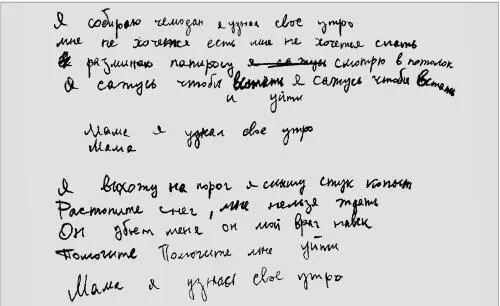 Я собираю чемодан я узнал свое утро
мне не хочется есть мне не хочется спать
Я разминаю папиросу я сажусь смотрю в потолок
Я сажусь чтобы встать я сажусь чтобы встать
и уйти
Мама я узнал свое утро
Мама
Я выхожу на порог я слышу стук копыт
Растопите снег, мне нельзя ждать
Он убьет меня он мой враг навек
Помогите Помогите мне уйти
Мама я узнал свое утро